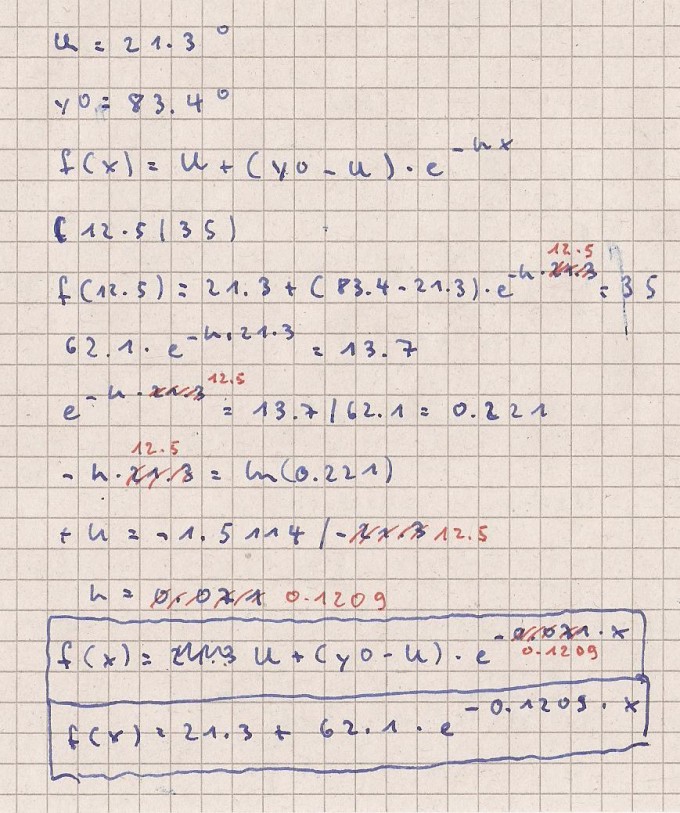 u = 21.3°
y0 = 83.4°
f(x) = u + (y0 - u) · e^-kx
(12.5 | 35)
f(12.5) = 21.3 + (83.4 - 21.3) · e^-k · 21.3 12.5 = 35
62.1 · e^-k · 21.3 = 13.7
e^-k · 21.3 12.5 = 13.7 / 62.1 = 0.221
-k · 21.3 12.5 = ln(0.221)
+k = -1.5114 / -21.3 12.5
k = 0.071 0.1209
f(x) = 21.3 u + (y0 - u) · e^-0.071 0.1209 · x
f(x) = 21.3 + 62.1 · e^-0.1209 · x